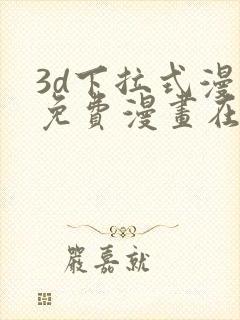 3d下拉式漫
免費漫畫在
嚴嘉就